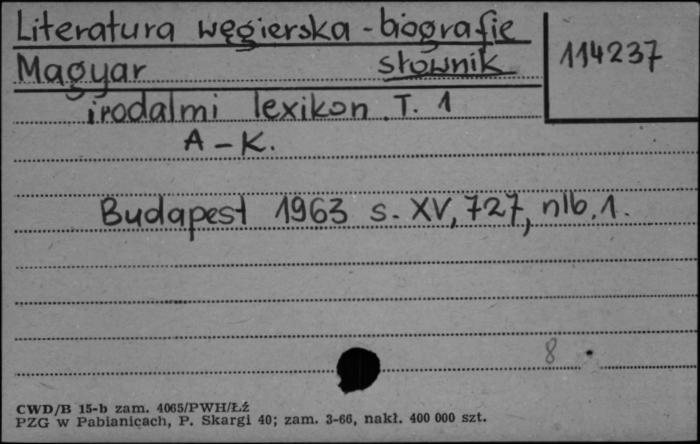 Literatura węgierska - biografie
114237
Magyar słownik
irodalmi lexikon. T. 1
A - K.
Budapest 1963 s. XV, 727, nlb. 1.
8
CWD/B 15-b zam. 4065/PWH/Łź
PZG w Pabianicach, P. Skargi 40; zam. 3-66, nakł. 400 000 szt.